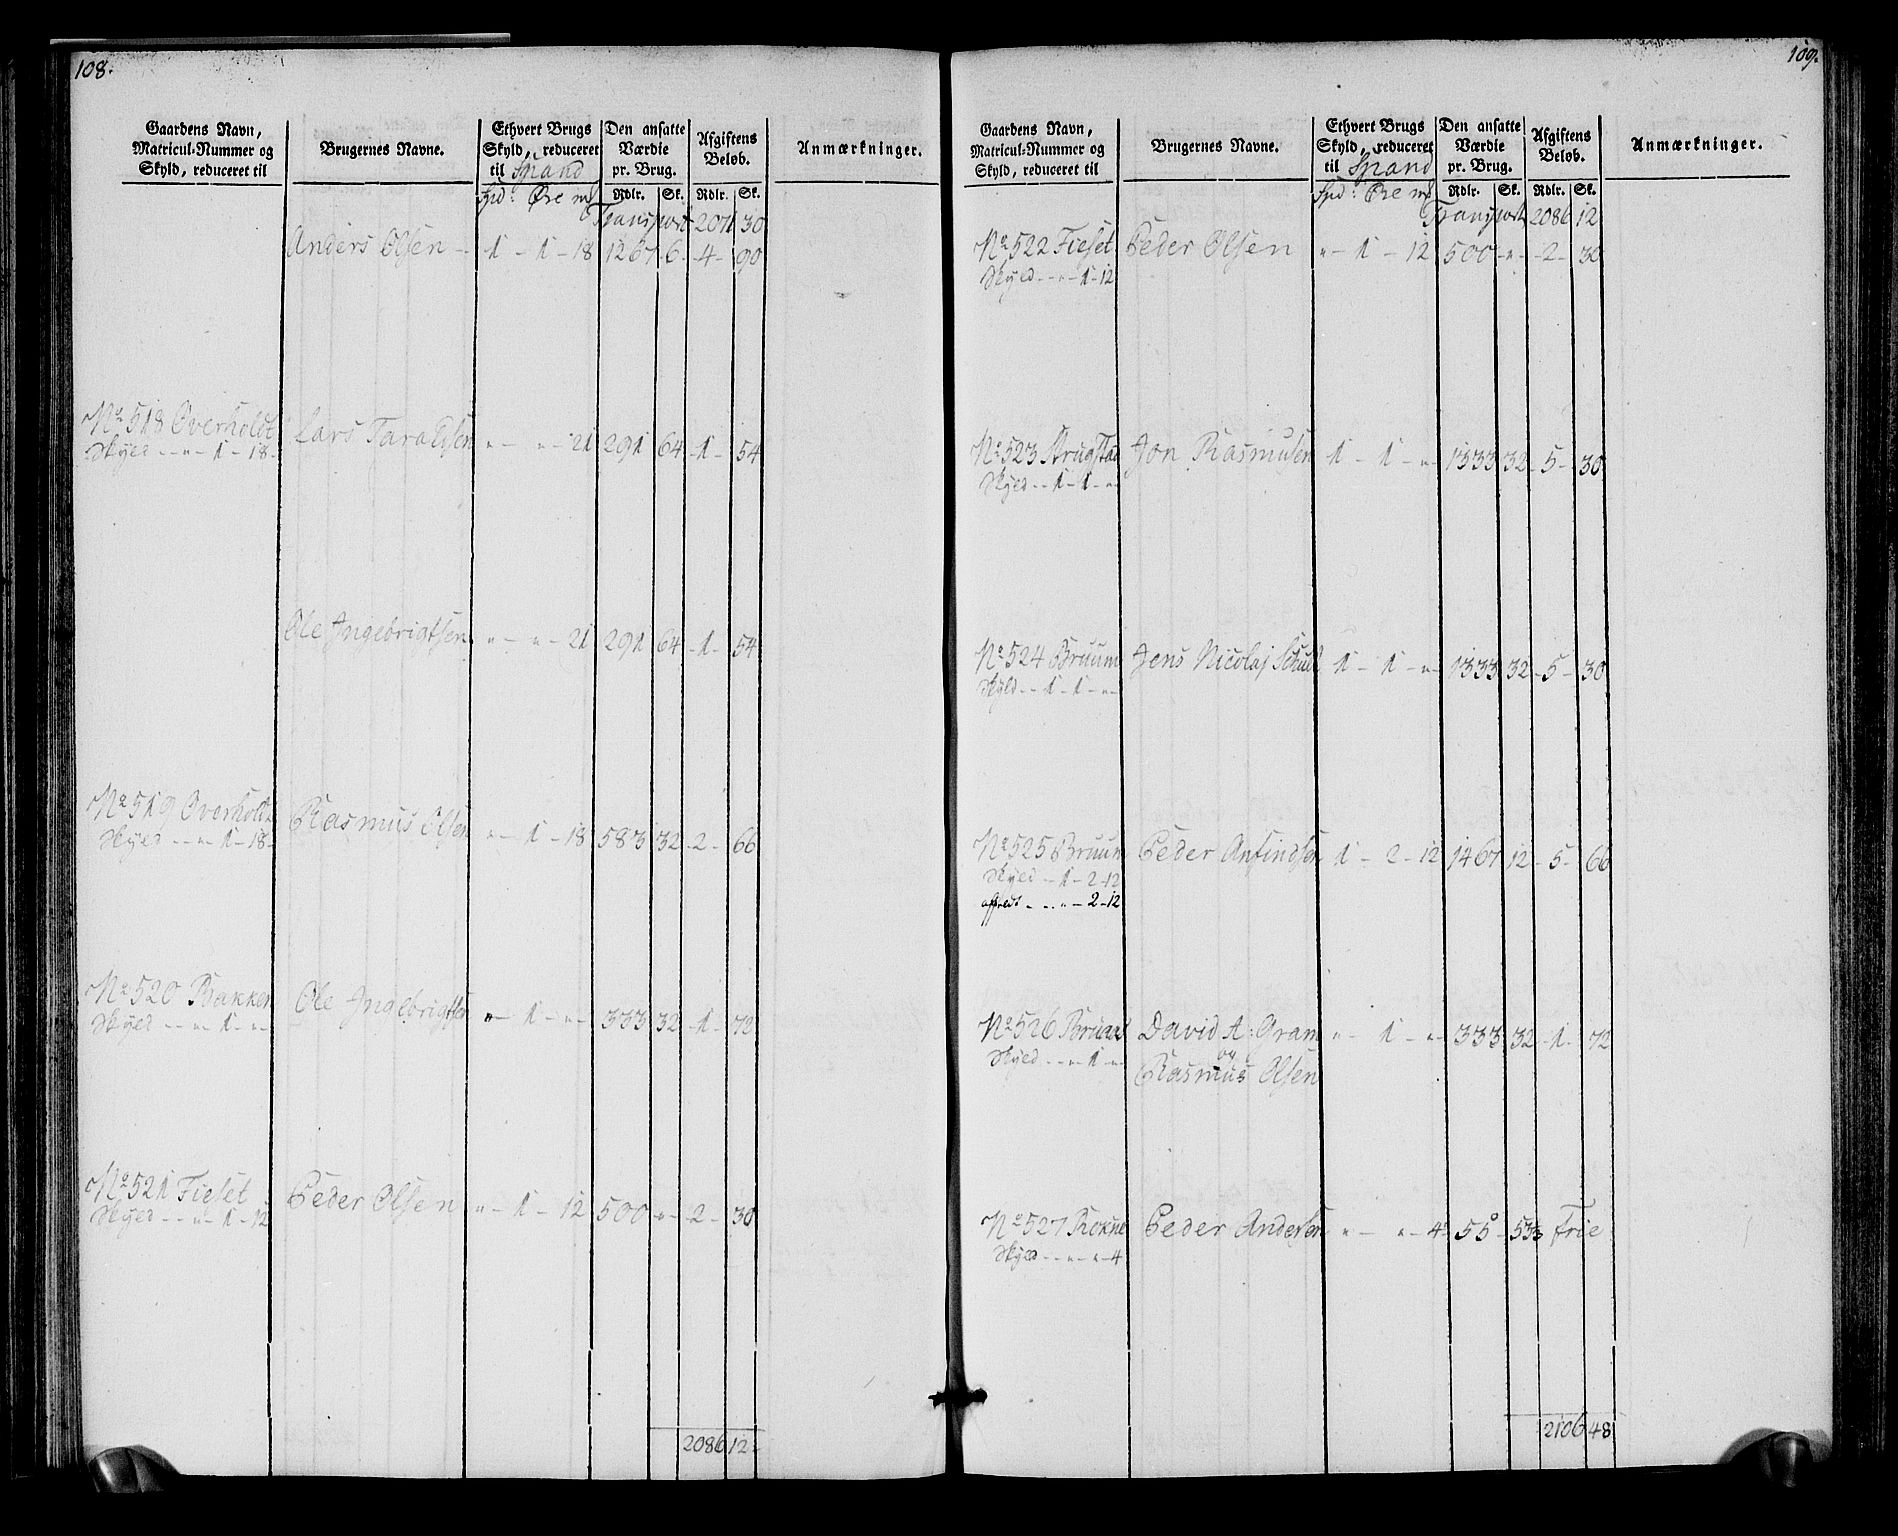 108.
Gaardens Navn, Matricul-Nummer og Skyld, reduceret til
Brugernes Navne.
Ethvert Brugs Skyld, reduceret til Spand
Den ansatte Værdie pr. Brug.
Afgiftens Beløb.
Anmærkninger.
Spd: Øre ml Rdlr. Sk. Rdlr. Sk.
Transport 2071 30
Anders Olsen - 1 - 1 - 18 1267 6 - 4 - 90
No 518 Overholdt Lars Taraldsen " - " - 21 291 64 - 1 - 54
Skyld - - " - 1 - 18 -
Ole Ingebrigtsen " - " - 21 291 64 - 1 - 54
No 519 Overholdt Rasmus Olsen " - 1 - 18 583 32 - 2 - 66
Skyld - - " - 1 - 18 -
No 520 Bakken Ole Ingebrigtsen " - 1 - " - 333 32 - 1 - 72
Skyld - - " - 1 - " -
No 521 Fieset Peder Olsen " - 1 - 12 500 " - 2 - 30
Skyld - - " - 1 - 12
2086 12 -
109.
Gaardens Navn, Matricul-Nummer og Skyld, reduceret til
Brugernes Navne.
Ethvert Brugs Skyld, reduceret til Spand
Den ansatte Værdie pr. Brug.
Afgiftens Beløb.
Anmærkninger.
Spd: Øre ml Rdlr. Sk. Rdlr. Sk.
Transport 2086 12
No 522 Fieset Peder Olsen " - 1 - 12 500 - " - - 2 - 30
Skyld - - " - 1 - 12
No 523 Krugstad Jon Rasmusen 1 - 1 - " - 1333 32 - 5 - 30
Skyld - - 1 - 1 - " -
No 524 Bruum Jens Nicolaj 1 - 1 - " - 1333 32 - 5 - 30
Skyld - - 1 - 1 - " -
No 525 Bruum Peder Anfindsen 1 - 2 - 12 1467 12 - 5 - 66
Skyld - - 1 - 2 - 12
- - " - 2 - 12
No 526 David A: Gram " - 1 - " - 333 32 - 1 - 72
Skyld - - " - 1 - " og
Rasmus Olsen
No 527 Peder Andersen " - " - 4 - 55 - 53 Frie
Skyld - - " - " - 4
2106 48